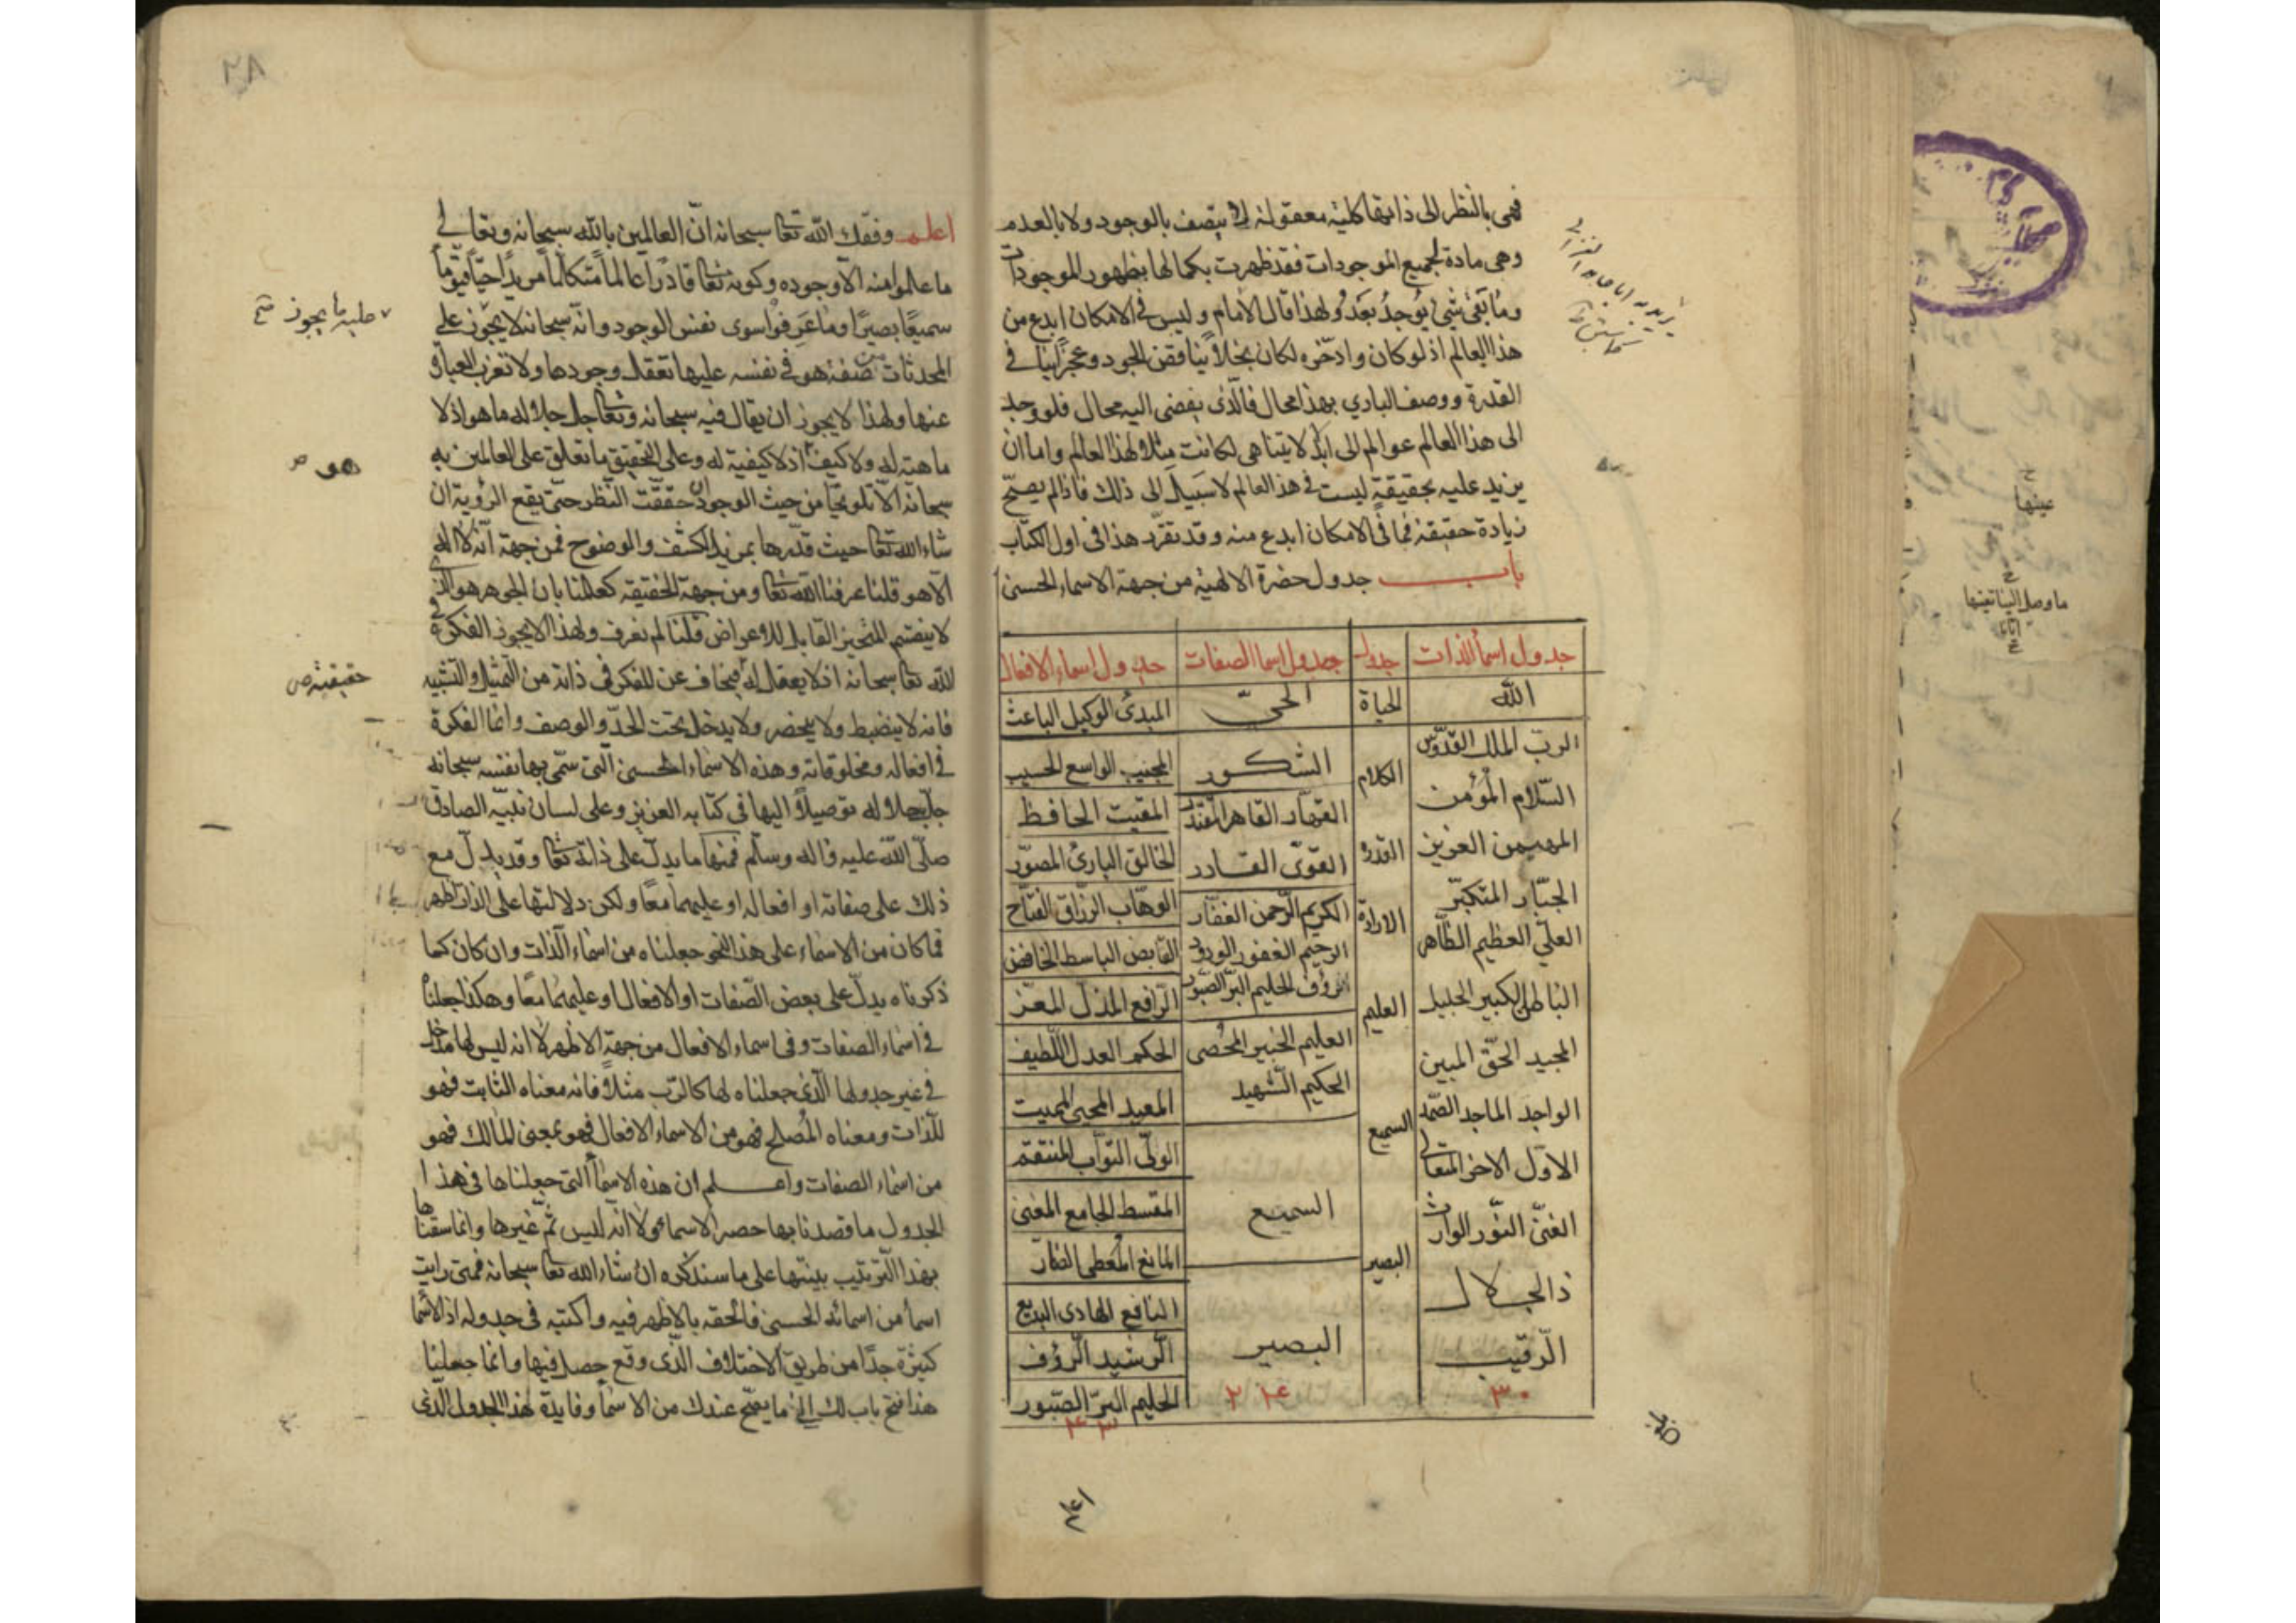 فهى بالنظر الى ذاتها كلية معقولة لا يتصف بالوجود ولا بالعدم
وهى مادة لجميع الموجودات فقد ظهرت بكمالها بظهور الموجودات
وما بقى شئ يوجد بعد ولهذا قال الامام وليس فى الامكان ابدع من
هذا العالم اذ لو كان وادخره لكان بخلا ينافقن الجود وعجزا ينافى
القدرة ووصف البارى بهذا محال فالذى يفضى اليه محال فلو وجد
الى هذا العالم عوالم الى ابد لا يتناهى لكانت مثلا لهذا العالم واما ان
يزيد عليه بحقيقة ليست فى هذا العالم لا سبيل الى ذلك فاذا لم يصح
زيادة حقيقة فما فى الامكان ابدع منه وقد تقرر هذا فى اول الكتاب
باب جدول حضرة الالهية من جهة الاسماء الحسنى
جدول اسما الذات
الله
الرب الملك القدوس
السلام المؤمن
المهيمن العزيز
الجبار المتكبر
العلى العظيم الظاهر
الباطن الكبير الجليل
المجيد الحق المبين
الواجد الماجد الصمد
الاول الاخر المتعالى
الغنى النور الوارث
ذالجلال
الرقيب
٣٠
جدول
الحياة
الكلام
القدرة
الارادة
العليم
السميع
البصير
جدول اسما الصفات
الحى
الشكور
القهار القاهر المقتدر
القوى القادر
الكريم الرحمن الغفار
الرحيم الغفور الودود
الرؤف الحليم البر الصبور
العليم الخبير المحصى
الحكيم الشهيد
السميع
البصير
جدول اسماء الافعال
المبدئ الوكيل الباعث
المجيب الواسع الحسيب
المقيت الحافظ
الخالق البارئ المصور
الوهاب الرزاق الفتاح
القابض الباسط الخافض
الرافع المذل المعز
الحكم العدل اللطيف
المعيد المحيى المميت
الولى التواب المنتقم
المقسط الجامع المغنى
المانع المعطى الضار
النافع الهادى البديع
الرشيد الرؤف
الحليم البر الصبور
اعلم وفقك الله تعا سبحانه ان العالمين بالله سبحانه وتعالى
ما علموا منه الا وجوده وكونه تعا قادرا عالما متكلما مريدا حيا قيوما
سميعا بصيرا وما عرفوا سوى نفس الوجود وانه سبحانه لا يجوز على
المحدثات من صفة هو فى نفسه عليها تعقل وجودها ولا تعزب العبارة
عنها ولهذا لا يجوز ان يقال فيه سبحانه وتعا جل جلاله ما هو اذ لا
ماهية له ولا كيف اذ لا كيفية له وعلى التحقيق ما تعلق على العالمين به
سبحانه الا تلويحا من حيث الوجود ان حققت النظر حتى يقع الرؤية ان
شاء الله تعا حيث قدرها بمزيد الكشف والوضوح فمن جهة انه لا اله
الا هو قلنا عرفنا الله تعا ومن جهة الحقيقة كعلمنا بان الجوهر هو الذى
لا ينقسم المتحيز القابل للاعراض قلنا لم نعرف ولهذا لا يجوز الفكرة فى
الله تعا سبحانه اذ لا يعقل له فيخاف عن للفكر فى ذاته من التمثيل والتشبيه
فانه لا ينضبط ولا يحضر ولا يدخل تحت الحد والوصف وانما الفكرة
فى افعاله ومخلوقاته وهذه الاسماء الحسنى التى سمى بها نفسه سبحانه
جل جلاله توصيلا اليها فى كتابه العزيز وعلى لسان نبيه الصادق
صلى الله عليه واله وسلم فمنها ما يدل على ذاته تعا وقد يدل مع
ذلك على صفاته او افعاله او عليهما معا ولكن دلالتها على الذات اظهر
فما كان من الاسماء على هذا النحو جعلناه من اسماء الذات وان كان كما
ذكرناه يدل على بعض الصفات او الافعال او عليهما معا وهكذا جعلنا
فى اسماء الصفات وفى اسماء الافعال من جهة الاظهر لا انه ليس لها مدخل
فى غير جدولها الذى جعلناه لها كالرب مثلا فانه معناه الثابت فهو
للذات ومعناه المصلح فهو من الاسماء الافعال فهو بمعنى المالك فهو
من اسماء الصفات واعلم ان هذه الاسما التى جعلناها فى هذا
الجدول ما قصدنا بها حصر الاسماء ولا انه ليس ثم غيرها وانما سقناها
بهذا الترتيب بينتها على ما سنذكره ان شاء الله تعا سبحانه فمتى رايت
اسما من اسمائه الحسنى فالحقه بالاظهر فيه واكتبه فى جدوله اذ الاسما
كثيرة جدا من طريق الاختلاف الذى وقع حصل فيها وانما جعلنا
هذا فتح باب لك الى ما يفتح عندك من الاسما وفايدة هذا الجدول الذى
عليه ما يجوز
هو
حقيقية
عينها
ما وصل الينا تعينها
اعلم